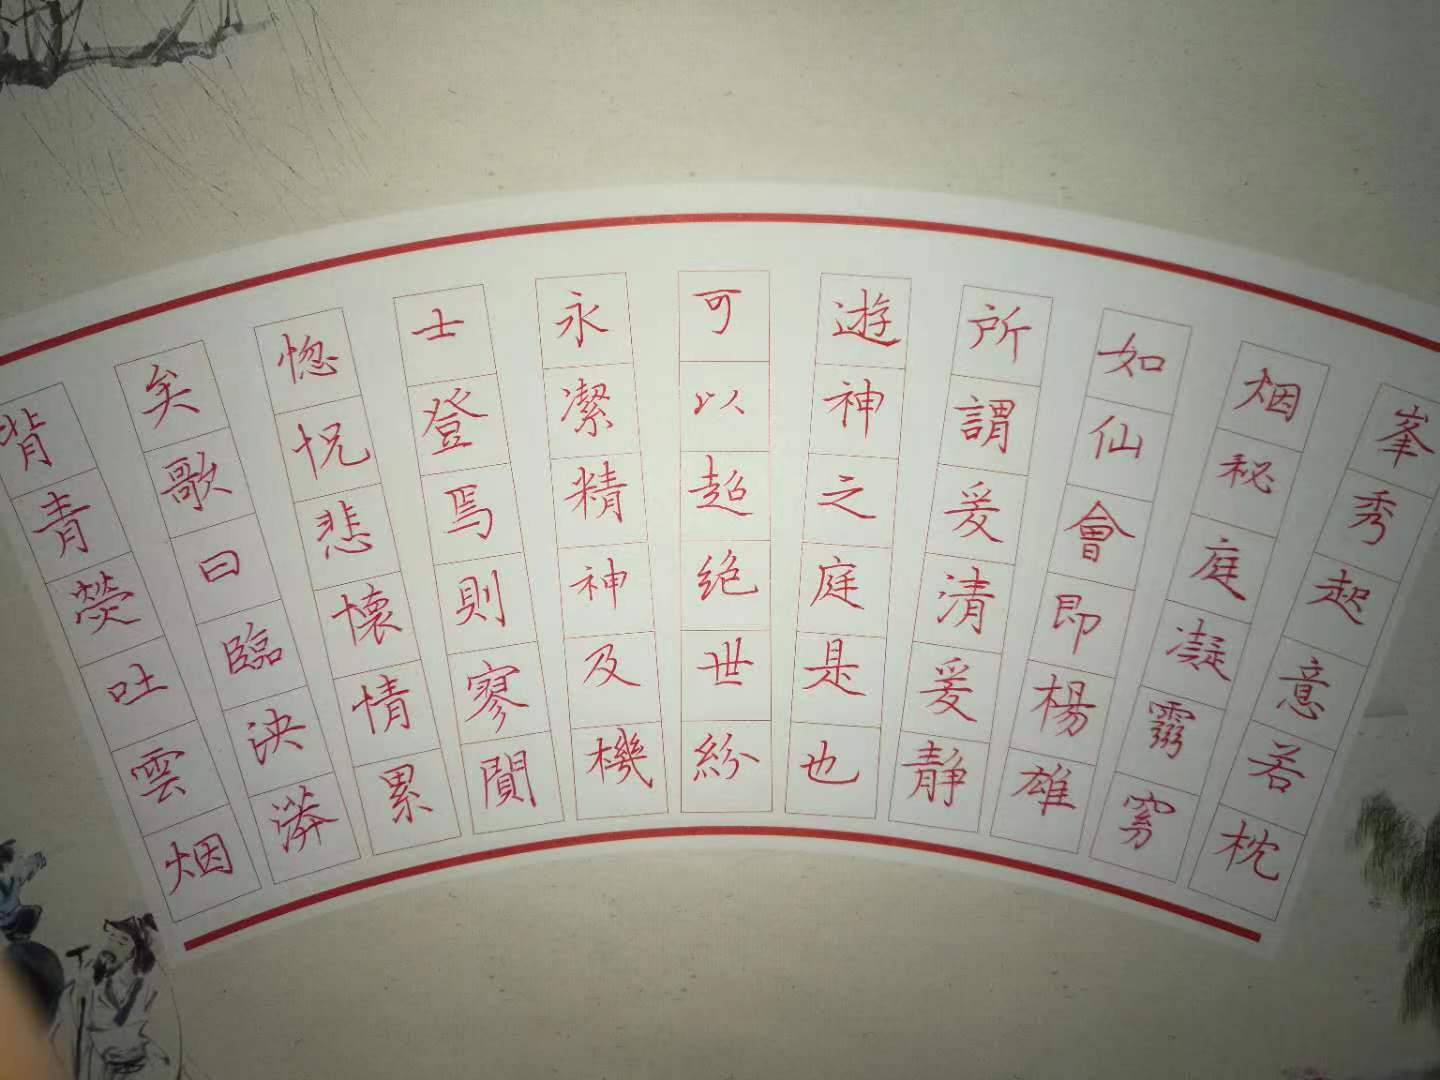 峯秀起意若枕
烟秘庭凝霛窈
如仙會即楊雄
所謂爰清爰靜
遊神之庭是也
可以超絶世紛
永潔精神及機
士登焉則寥闃
惚怳悲懷情累
矣歌曰臨泱漭
背青熒吐雲烟